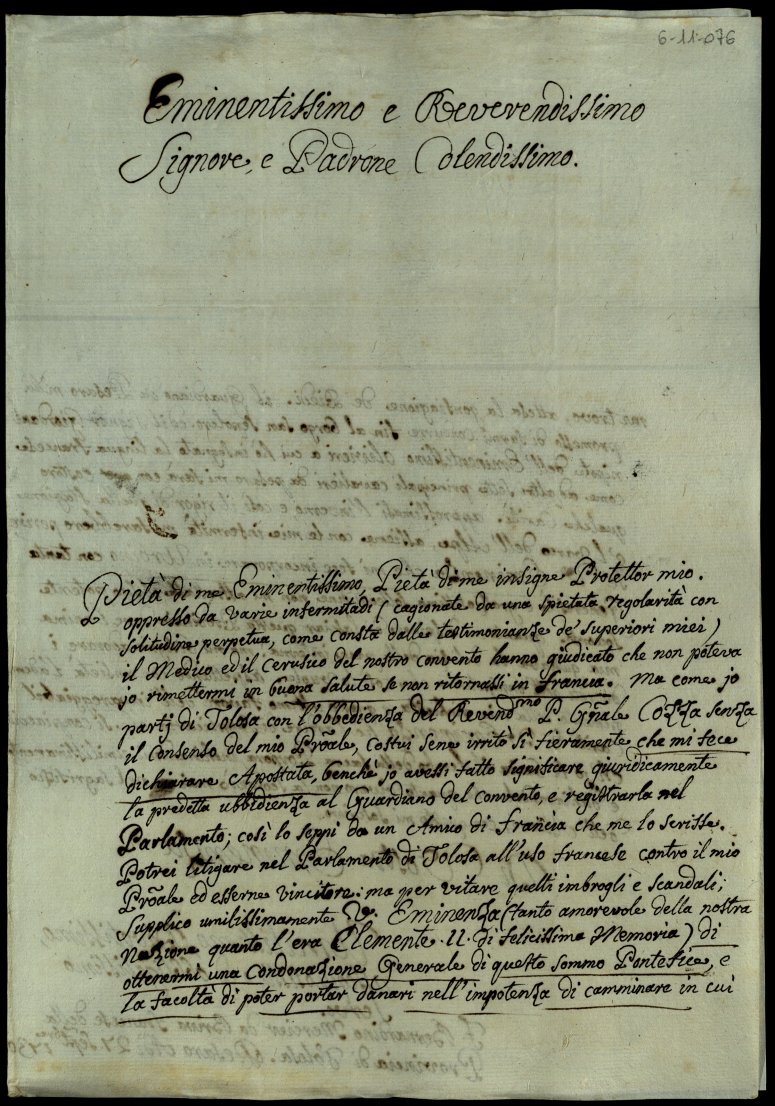 6-11-076
Eminentissimo e Reverendissimo
Signore, e Padrone Colendissimo.
Pietà di me Eminentissimo, Pietà di me insigne Protettor mio.
oppresso da varie infermitadi ( cagionate da una spietata regolarità con
solitudine perpetua, come consta dalle testimonianze de' superiori miei )
il Medico ed il Cerusico del nostro convento hanno giudicato che non poteva
jo rimettermi in buona salute se non ritornassi in francia. Ma come jo
partj di Tolosa con l'obbedienza del Revendmo P. Gñale Cozza senza
il Consenso del mio Prõale, costui sene irritò sì fieramente che mi fece
dichiarare Apostata, benche jo avessi fatto significare giuridicamente
la predetta ubbidienza al Guardiano del convento, e registrarla nel
Parlamento; così lo seppi da un Amico di francia che me lo scrisse.
Potrei litigare nel Parlamento di Tolosa all'uso francese contro il mio
Prõale ed esserne vincitore: ma per vitare quelli imbrogli e scandali;
Supplico umilissimamente V. Eminenza (tanto amorevole della nostra
Nazione quanto l'era Clemente .11. di felicissima Memoria) di
ottenermi una Condonazione Generale di questo sommo Pontefice, e
la facoltà di poter portar danari nell'impotenza di camminare in cui